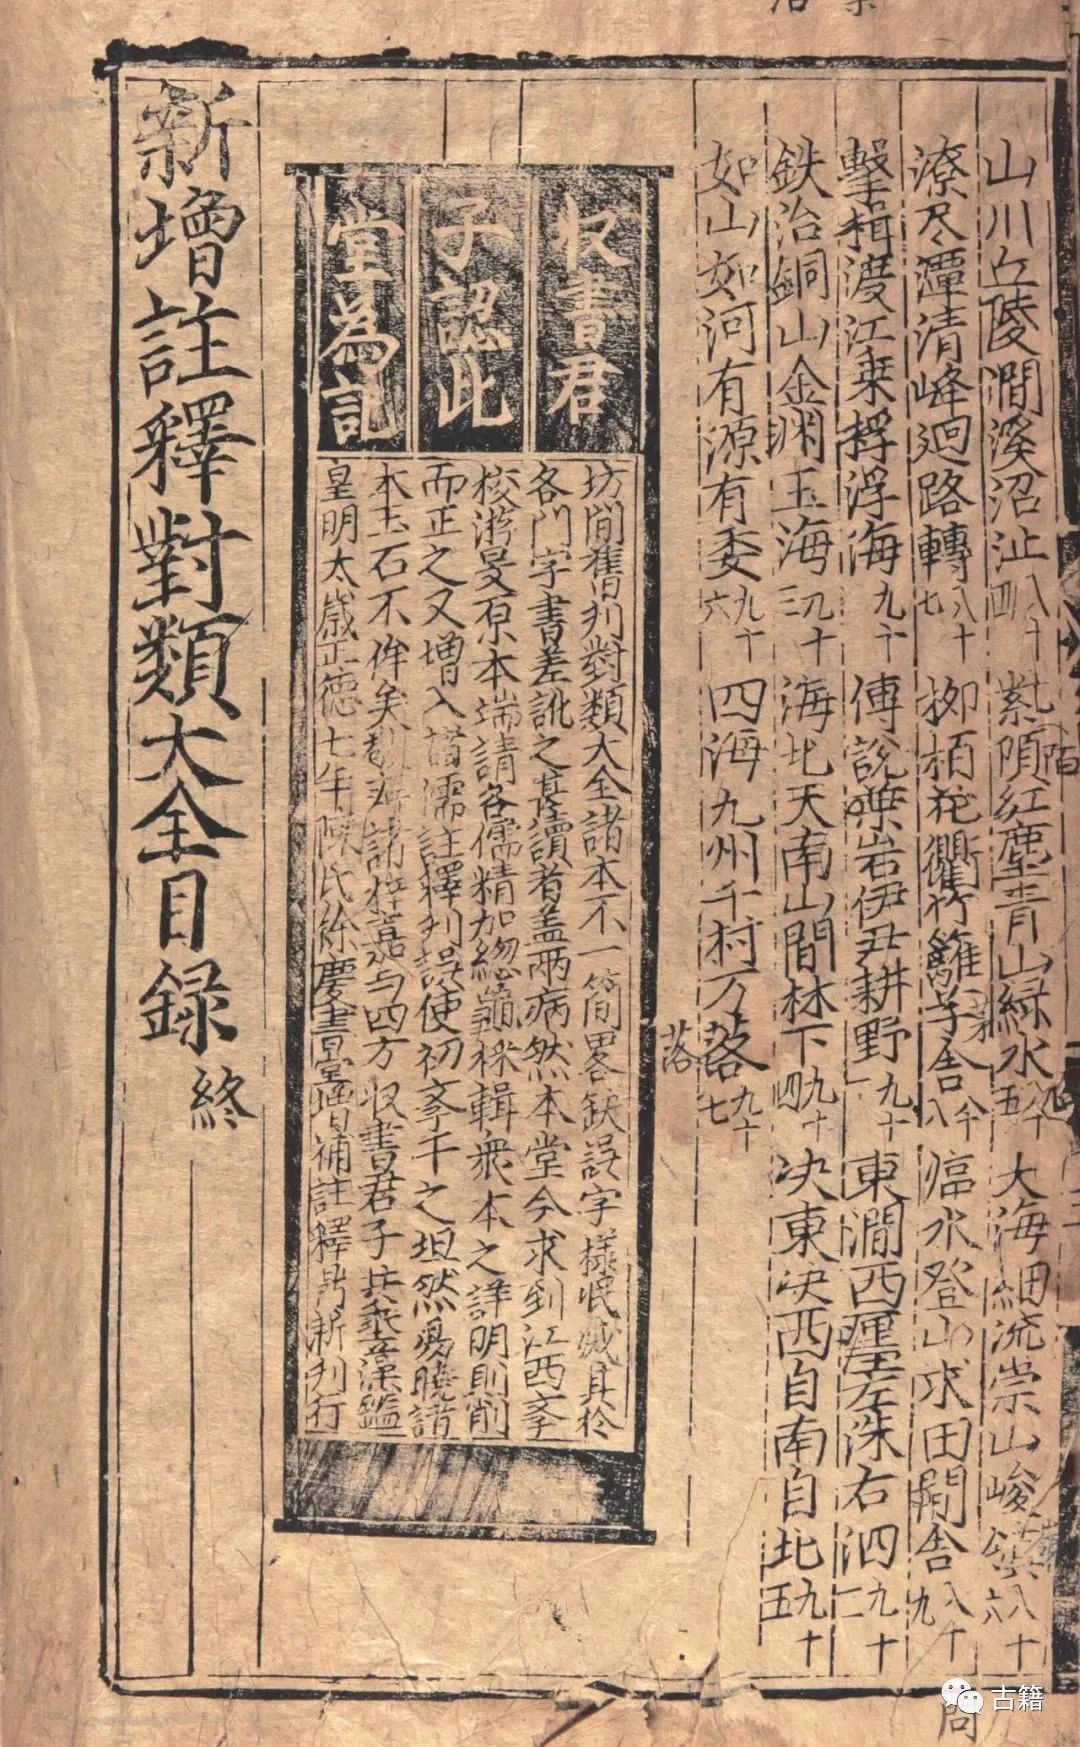 山川丘陵澗溪沼沚八十四 紫陌紅塵青山緑水八十五 大海細流崇山峻嶺八十六
潦尽潭清峰迴路轉八十七 栁栢花衢竹籬茅舍八十八 臨水登山求田問舍八十九
擊楫渡江乗桴浮海九十 傅説築岩伊尹耕野九十一 東澗西瀍左洙右泗九十二
鉄冶銅山金渊玉海九十三 海北天南山間林下九十四 决東决西自南自北九十五
如山如河有源有委九十六 四海九州千村万落九十七
落
収書君
子認此
堂為記
坊間舊刋對類大全諸本不一簡畧缺誤字様㒹滅其於
各門字書差訛之甚讀者盖兩病然本堂今求到江西李
校游旻原本端請各儒精加緫龜採輯衆本之詳明則削
而正之又增入諸儒註釋刋誤使初李干之坦然易曉諸
本玉石不侔矣 諸梓嘉与四方収書君子共垂藻鑑
皇明太歳正德七年陳氏餘慶書堂增補註釋鼎新刋行
新增註釋對類大全目録終
古籍